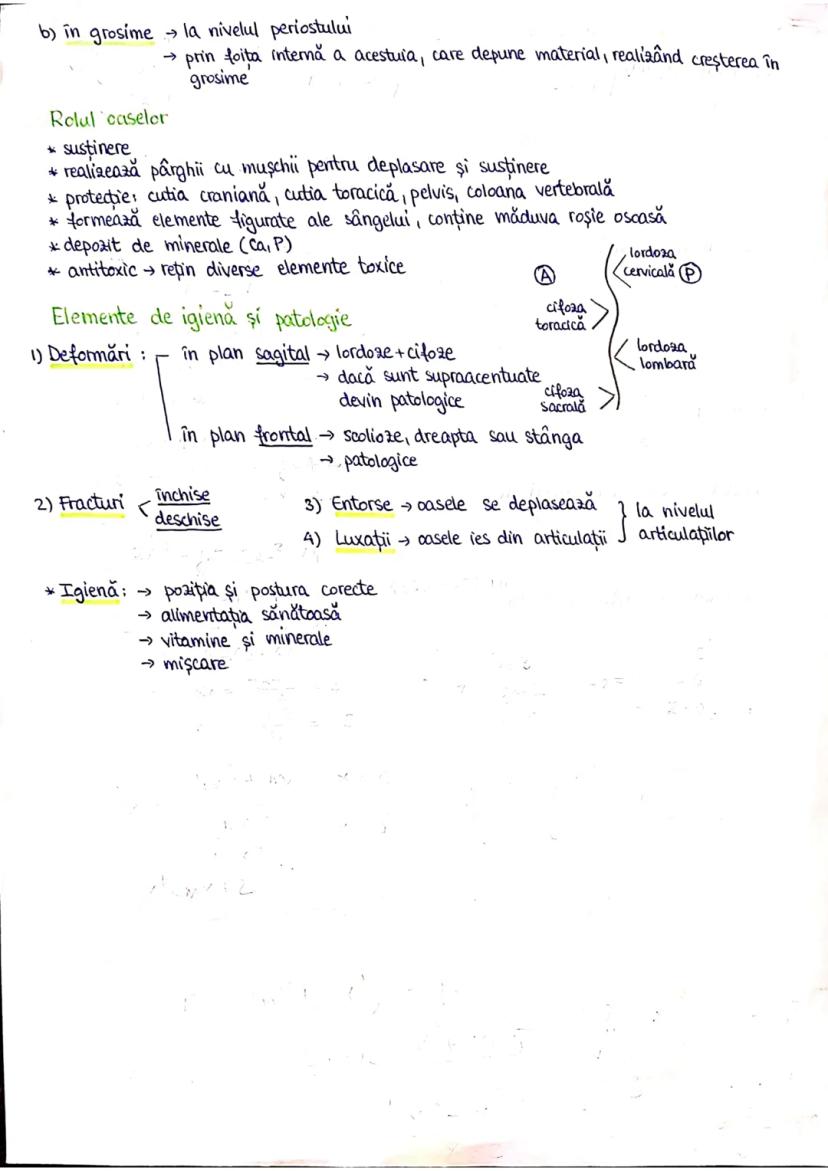 b) în grosime → la nivelul periostului
→ prin foița internă a acestuia, care depune material, realizând creșterea în
grosime
Rolul oaselor
* susținere
* realizează pârghii cu mușchii pentru deplasare și susținere
* protecție: cutia craniană, cutia toracică, pelvis, coloana vertebrală
* formează elemente figurate ale sângelui, conține măduva roșie osoasă
* depozit de minerale (Ca, P)
* antitoxic → rețin diverse elemente toxice
Elemente de igienă și patologie
A
lordoza
cervicală P
cifoza
toracică
lordoza
lombară
cifoza
sacrală
1) Deformări : în plan sagital → lordoze + cifoze
→ dacă sunt supraaccentuate
devin patologice
în plan frontal → scolioze, dreapta sau stânga
→ patologice
2) Fracturi < închise
deschise
3) Entorse → oasele se deplasează
4) Luxații → oasele ies din articulații
} la nivelul
articulațiilor
* Igienă: → poziția și postura corecte
→ alimentația sănătoasă
→ vitamine și minerale
→ mișcare